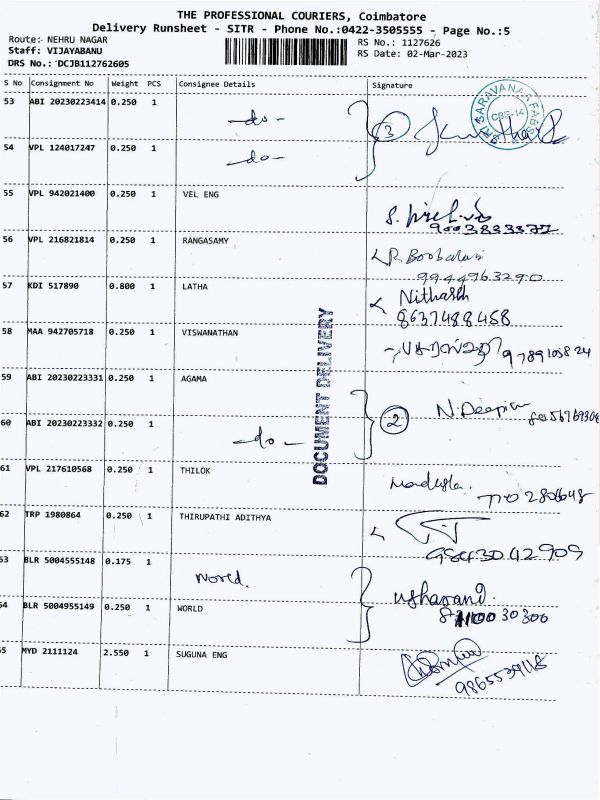 THE PROFESSIONAL COURIERS, Coimbatore
Delivery Runsheet - SITR - Phone No.:0422-3505555 - Page No.:5
Route:- NEHRU NAGAR
RS No.: 1127626
Staff: VIJAYABANU
RS Date: 02-Mar-2023
DRS No.: DCJB112762605
S No Consignment No Weight PCS Consignee Details Signature
53 ABI 20230223414 0.250 1 -do- 3
SRI SARAVANAA FABS CBE-14
54 VPL 124017247 0.250 1 -do-
55 VPL 942021400 0.250 1 VEL ENG
9003833377
56 VPL 216821814 0.250 1 RANGASAMY R. Boobalan
9944963290
57 KDI 517890 0.800 1 LATHA Nitharsh
8637488458
58 MAA 942705718 0.250 1 VISWANATHAN
DOCUMENT DELIVERY
59 ABI 20230223331 0.250 1 AGAMA 2 N. Deepika
60 ABI 20230223332 0.250 1 -do-
61 VPL 217610568 0.250 1 THILOK
62 TRP 1980864 0.250 1 THIRUPATHI ADITHYA
9843042909
63 BLR 5004555148 0.175 1 World.
64 BLR 5004955149 0.250 1 WORLD
65 MYD 2111124 2.550 1 SUGUNA ENG
9865539118